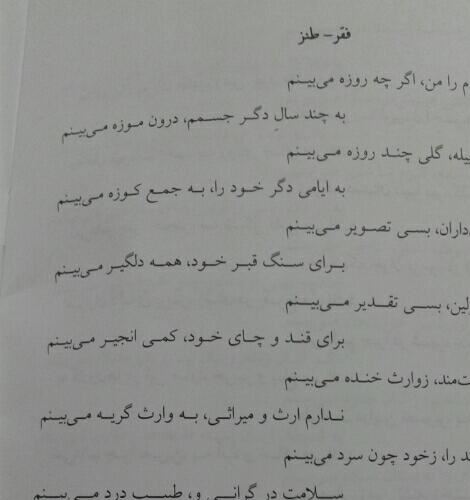 فقر- طنز
را من، اگر چه روزه می‌بینم
به چند سالِ دگر جسمم، درون موزه می‌بینم
گلی چند روزه می‌بینم
به ایامی دگر خود را، به جمع کوزه می‌بینم
بسی تصویر می‌بینم
برای سنگ قبر خود، همه دلگیر می‌بینم
بسی تقدیر می‌بینم
برای قند و چای خود، کمی انجیر می‌بینم
زوارث خنده می‌بینم
ندارم ارث و میراثی، به وارث گریه می‌بینم
را، زخود چون سرد می‌بینم
سلامت در گرانی و، طبیب درد می‌بینم